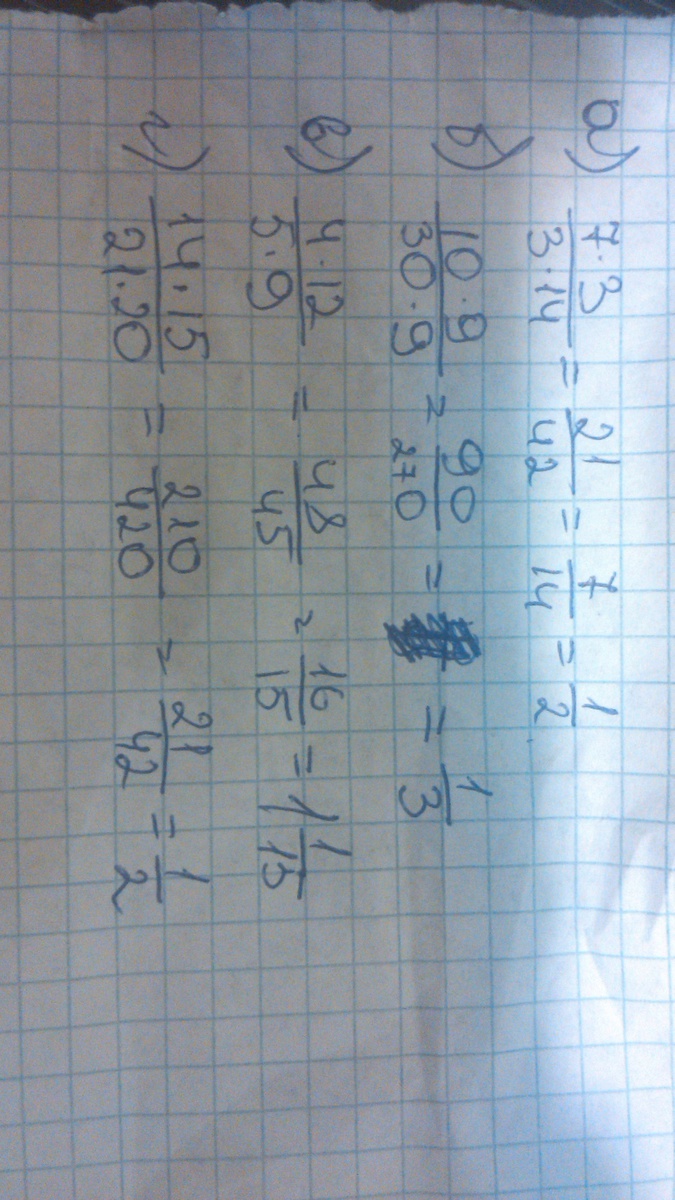 а) 7·3/3·14 = 21/42 = 7/14 = 1/2
б) 10·9/30·9 = 90/270 = = 1/3
в) 4·12/5·9 = 48/45 = 16/15 = 1 1/15
г) 14·15/21·20 = 210/420 = 21/42 = 1/2